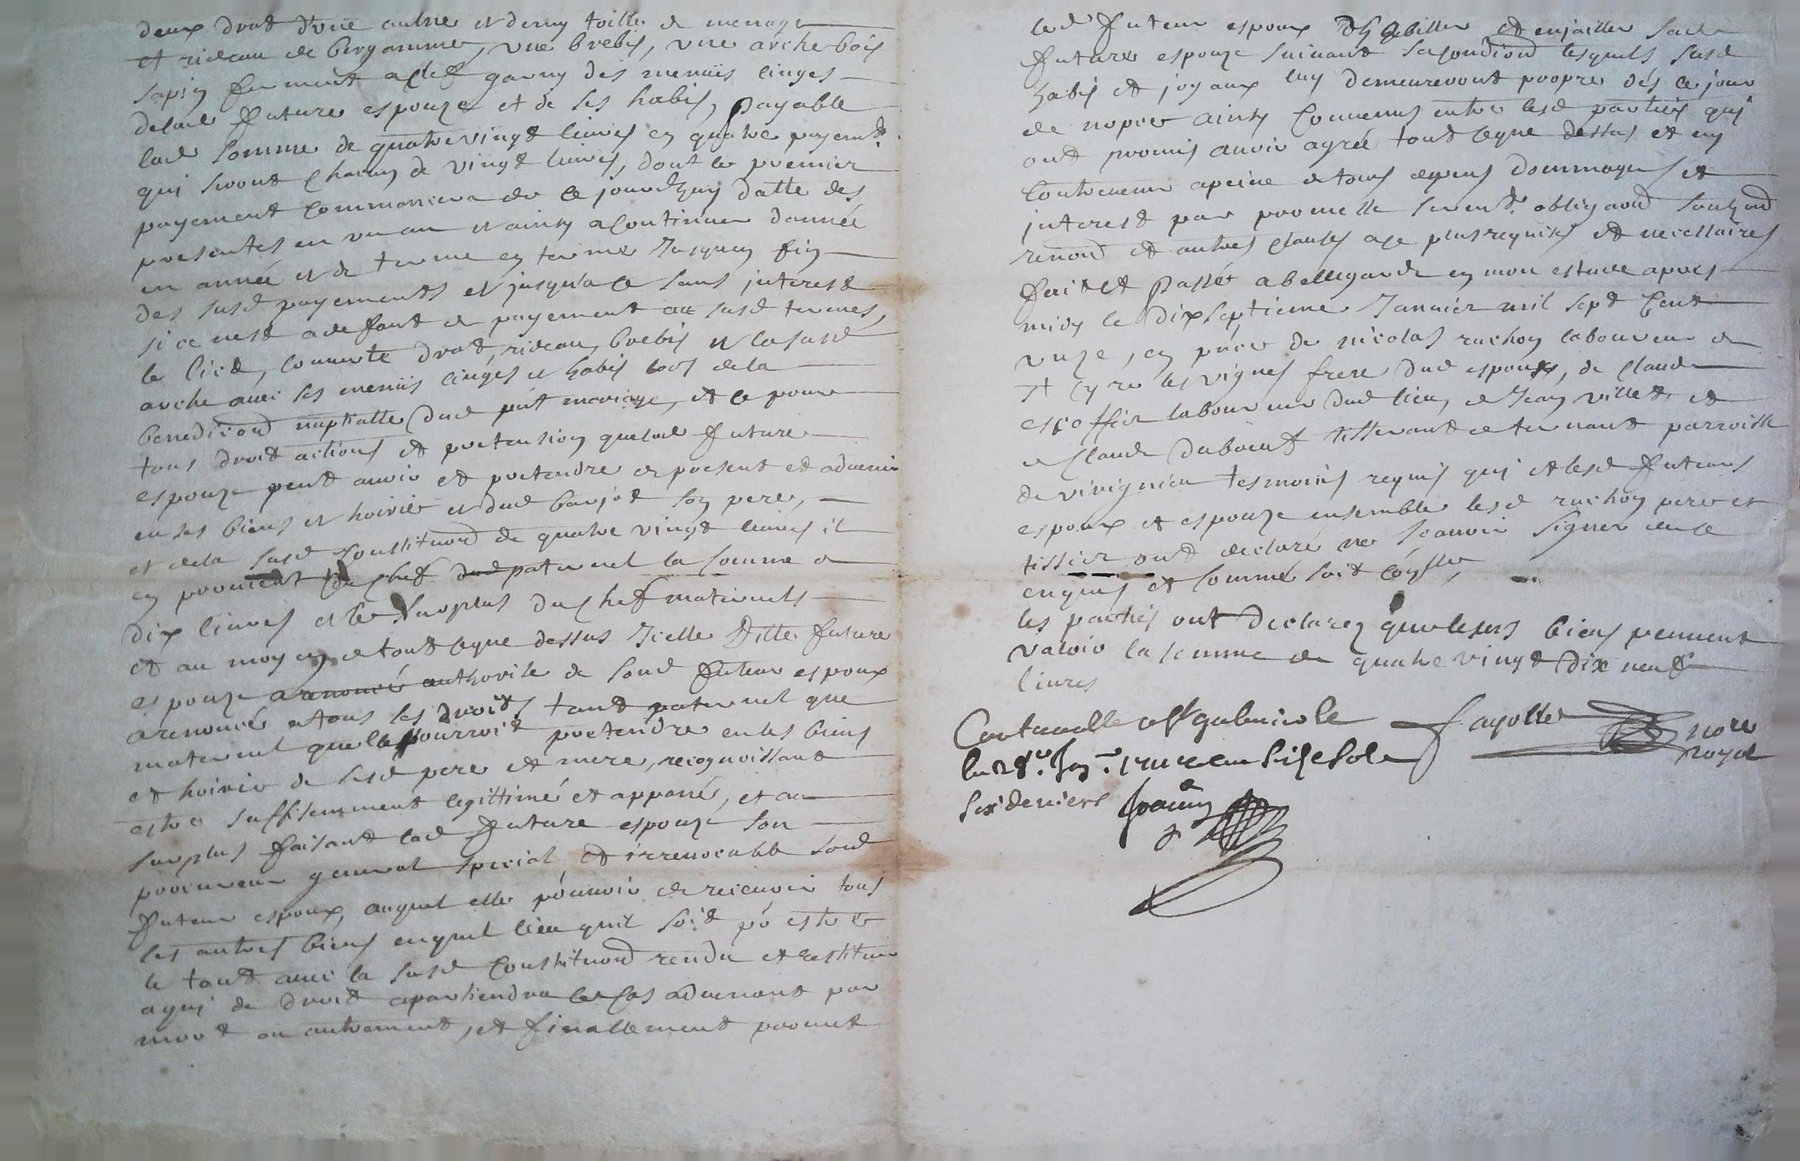 deux drat d'une aulne et demy toille de menage
et rideau de bergamme, une brebis, une arche bois
sapin fermant a clef garny des menuis linges
delad future espouze et de ses habis, payable
lad somme de quatrevingt livres en quatre payemts
qui seront chacun de vingt livres, dont le premier
payement commancera de ce jourdhuy datte des
presentes en un an et ainsy a continuer dannée
en année et de terme en terme jusques fin
des susd payements et jusqu'a ce sans interest
si ce nest a deffaut de payement au susd termes,
le lict, couverte drat, rideau, brebis et la susd
arche avec ses menuis linges et habis lors dela
benediction nuptialle dud pnt mariage, et ce pour
tous droit actions et pretension que lad future
espouze peut avoir et pretendre de present et advenir
en ses biens et hoirie et dud son pere,
et dela susd constitution de quatre vingt livres il
en provient du chef dud paternel la somme de
dix livres et le surplus du chef maternels
et au moyen de tout ceque dessus icelle ditte future
espouze a renoncé authorite de sond futeur espoux
a renoncé a tous les droits tant paternel que
maternel quelle pourroit pretendre en les biens
et hoirie de sesd pere et mere, recognoissant
estre suffisemment legittimé et apparié, et au
surplus faisant lad future espouze son
procureur general special et irrevocable sond
futeur espoux, auquel elle pouvoir de recevoir tous
ses autres biens enquel lieu quil soit po estre
le tout avec la susd constitution rendu et restitué
a qui de droit apartiendra le cas advenant par
mort ou autrement, et finallement promet
led futeur espoux dhabiller et enjailler sad
future espouze suivant sa condition lesquels susd
habis et joyaux luy demeureront propre dés ce jour
de nopce ainsy convenus entre lesd parties qui
ont promis avoir agréé tout ceque dessus et ny
contrevenir a peine de tous depens dommages et
interest par promesse serment obligaon soubzon
renond et autres clauses a ce plus requises et necessaires
fait et passé a bellegarde en mon estude apres
midy le dix septieme janvier mil sept cent
unze, en pnce de nicolas ruchon laboureur de
St Cyr les vignes frere dud espoux, de claude
escoffier laboureur dud lieu, de jean villet et
de claude duboeuf tisserant de ternant parroisse
de virignieu tesmoins requis qui et lesd futeurs
espoux et espouze ensemble lesd ruchon pere et
tissier ont declaré ne scavoir signer de ce
enquis et sommé soit controllé,
les parties ont declarez que leurs biens peuvent
valoir la somme de quatre vingt dix neuf
livres
Controllé a St galmier le
le 28e Janr 1711 Reçu six sols
six deniers
fayolle nore
royal